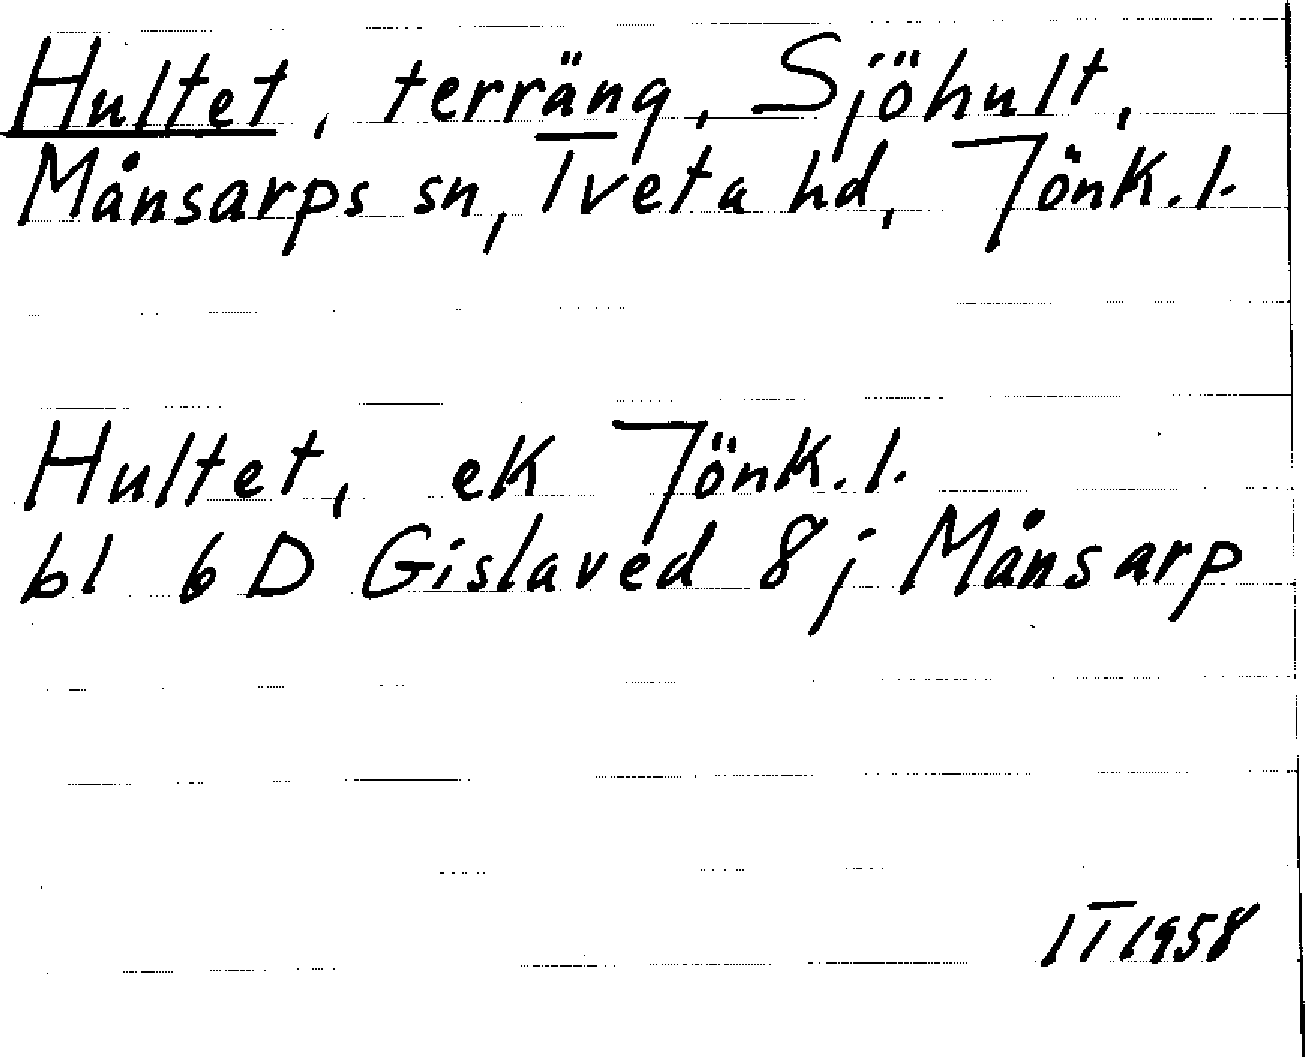 Hultet, terräng, Sjöhult,
Månsarps sn, Tveta hd, Jönk.l.
Hultet, ek Jönk.l.
bl 6 D Gislaved 8 j Månsarp
IT 1958